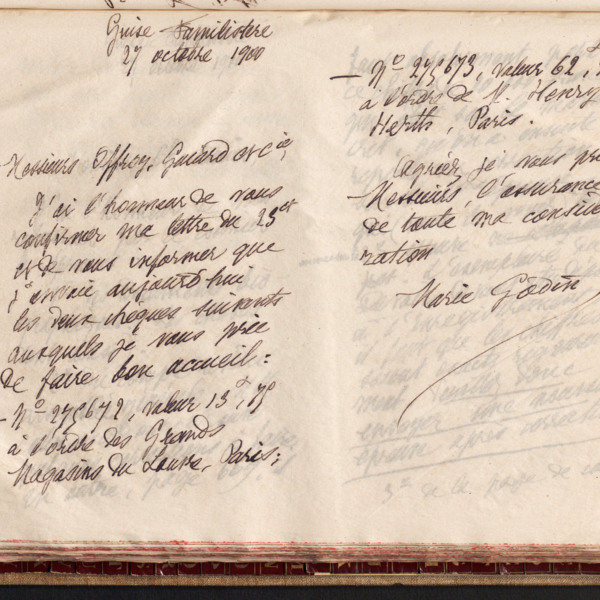 Guise-Familistère
27 octobre 1900
Messieurs Offroy, Guiard et Cie,
J'ai l'honneur de vous
confirmer ma lettre du 23 ct
et de vous informer que
j'envoie aujourd'hui
les deux chèques suivants
auxquels je vous prie
de faire bon accueil :
- No 275672, valeur 13f,70
à l'ordre des Grands
Magasins du Louvre, Paris ;
- No 275673, valeur 62,
à l'ordre de M. Henry
Herth, Paris.
Agréez, je vous pri
Messieurs, l'assurance
de toute ma considé
ration
Marie Godin